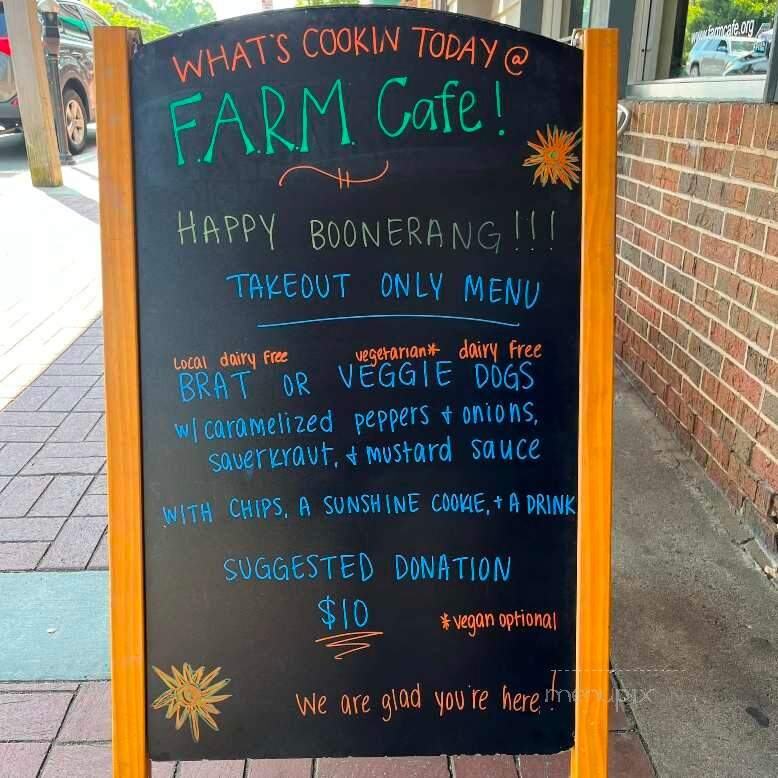 www.farmcafe.org
WHAT'S COOKIN TODAY @
F.A.R.M. Cafe!
HAPPY BOONERANG!!!
TAKEOUT ONLY MENU
Local dairy free vegetarian* dairy free
BRAT OR VEGGIE DOGS
w/ caramelized peppers + onions,
sauerkraut, + mustard sauce
WITH CHIPS, A SUNSHINE COOKIE, + A DRINK
SUGGESTED DONATION
$10
*vegan optional
We are glad you're here!
menupix